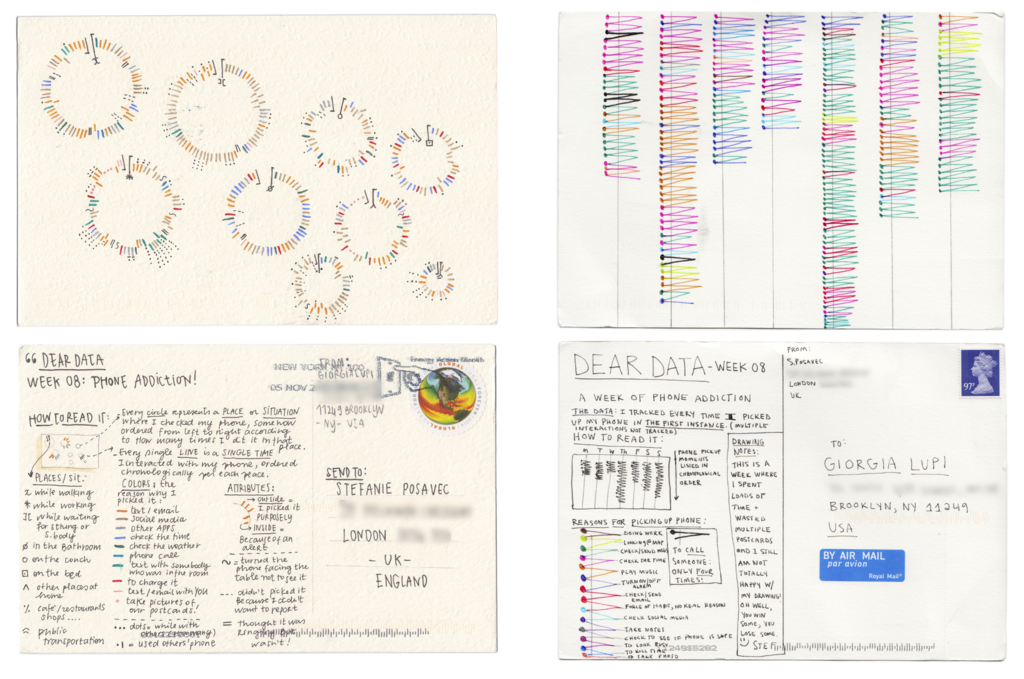 “ DEAR DATA
WEEK 08: PHONE ADDICTION!
HOW TO READ IT:
Every circle represents a PLACE or SITUATION
where I checked my phone, somehow
ordered from left to right according
to how many times I did it in that
place.
Every single LINE is a SINGLE TIME
I interacted with my phone, ordered
chronologically per each place.
PLACES/SIT.
while walking
while working
while waiting
for sthng or
s.body
in the bathroom
on the couch
on the bed
other places at
home
cafe/restaurants
shops....
public
transportation
COLORS: the
reason why I
picked it!
text/email
social media
other APPS
check the time
check the weather
phone call
text with somebody
who was in the room
to charge it
text/email with YOU
take pictures of
our postcards!
dots= while with
others
= used others' phone
ATTRIBUTES:
OUTSIDE =
I picked it
PURPOSELY
INSIDE =
Because of an
alert
= turned the
phone facing the
table not to see it
didn't picked it
because I didn't
want to report
= thought it was
ringing but
wasn't!
NEW YORK NY 100
05 NOV 2
FROM:
GIORGIA LUPI
11249 BROOKLYN
- NY - USA
GLOBAL
FOREVER
SEND TO:
STEFANIE POSAVEC
LONDON
- UK -
ENGLAND
DEAR DATA - WEEK 08
A WEEK OF PHONE ADDICTION
THE DATA: I TRACKED EVERY TIME I PICKED
UP MY PHONE IN THE FIRST INSTANCE. (MULTIPLE
INTERACTIONS NOT TRACKED)
HOW TO READ IT:
M T W Th F S S
PHONE PICKUP
MOMENTS
LISTED IN
CHRONOLOGICAL
ORDER
REASONS FOR PICKING UP PHONE:
DOING WORK
LOOKING @ MAP
CHECK/SEND
CHECK THE TIME
PLAY MUSIC
TURN ON/OFF
ALARM
CHECK/SEND
EMAIL
FORCE OF HABIT, NO REAL REASON
CHECK SOCIAL MEDIA
TAKE NOTES
CHECK TO SEE IF PHONE IS SAFE
TO LOOK BUSY
TO KILL TIME
TO TAKE PHOTO
TO CALL
SOMEONE:
ONLY FOUR
TIMES!
DRAWING
NOTES:
THIS IS A
WEEK WHERE
I SPENT
LOADS OF
TIME +
WASTED
MULTIPLE
POSTCARDS
AND I STILL
AM NOT
TOTALLY
HAPPY W/
MY DRAWING!
OH WELL,
YOU WIN
SOME, YOU
LOSE SOME.
STEF
FROM:
S. POSAVEC
LONDON
UK
97P
TO:
GIORGIA LUPI
BROOKLYN, NY 11249
USA
BY AIR MAIL
par avion
Royal Mail